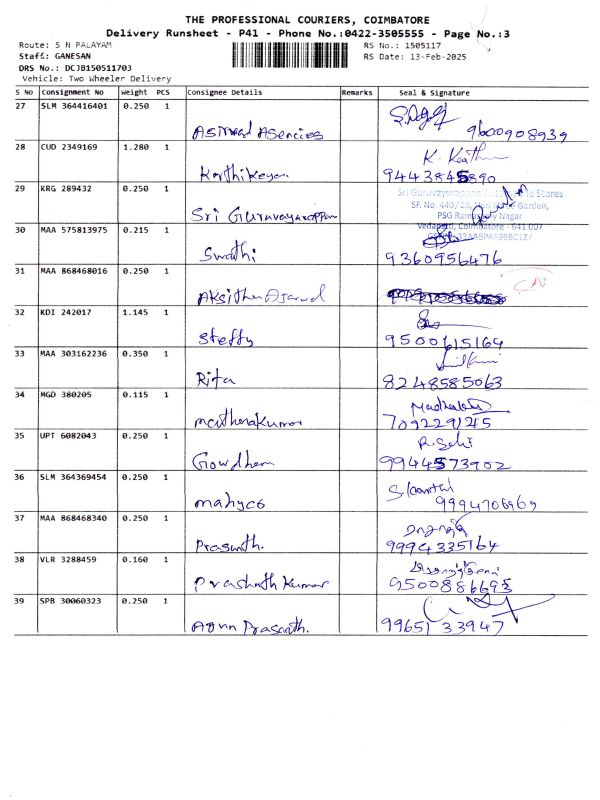 THE PROFESSIONAL COURIERS, COIMBATORE
Delivery Runsheet - P41 - Phone No.:0422-3505555 - Page No.:3
Route: S N PALAYAM RS No.: 1505117
Staff: GANESAN RS Date: 13-Feb-2025
DRS No.: DCJB150511703
Vehicle: Two Wheeler Delivery
S NO Consignment No Weight PCS Consignee Details Remarks Seal & Signature
27 SLM 364416401 0.250 1
9600908939
28 CUD 2349169 1.280 1
Karthikeyan 9443845890
29 KRG 289432 0.250 1 Sri Guruvayurappan Stores
SF. No. 440/2B, Garden,
Sri Guruvayurappan PSG Nagar
30 MAA 575813975 0.215 1 Vedapatti, Coimbatore - 641 007
Swathi 9360956476
31 MAA 868468016 0.250 1
32 KDI 242017 1.145 1
Steffy 9500615164
33 MAA 303162236 0.350 1
Rita 8248585063
34 MGD 380205 0.115 1
7092291245
35 UPT 6082043 0.250 1
Gowdham 9944573902
36 SLM 364369454 0.250 1
mahyco 9994706969
37 MAA 868468340 0.250 1
Prasanth. 9994335164
38 VLR 3288459 0.160 1
Prashath Kumar
39 SPB 30060323 0.250 1
Arun Prasanth. 9965133947